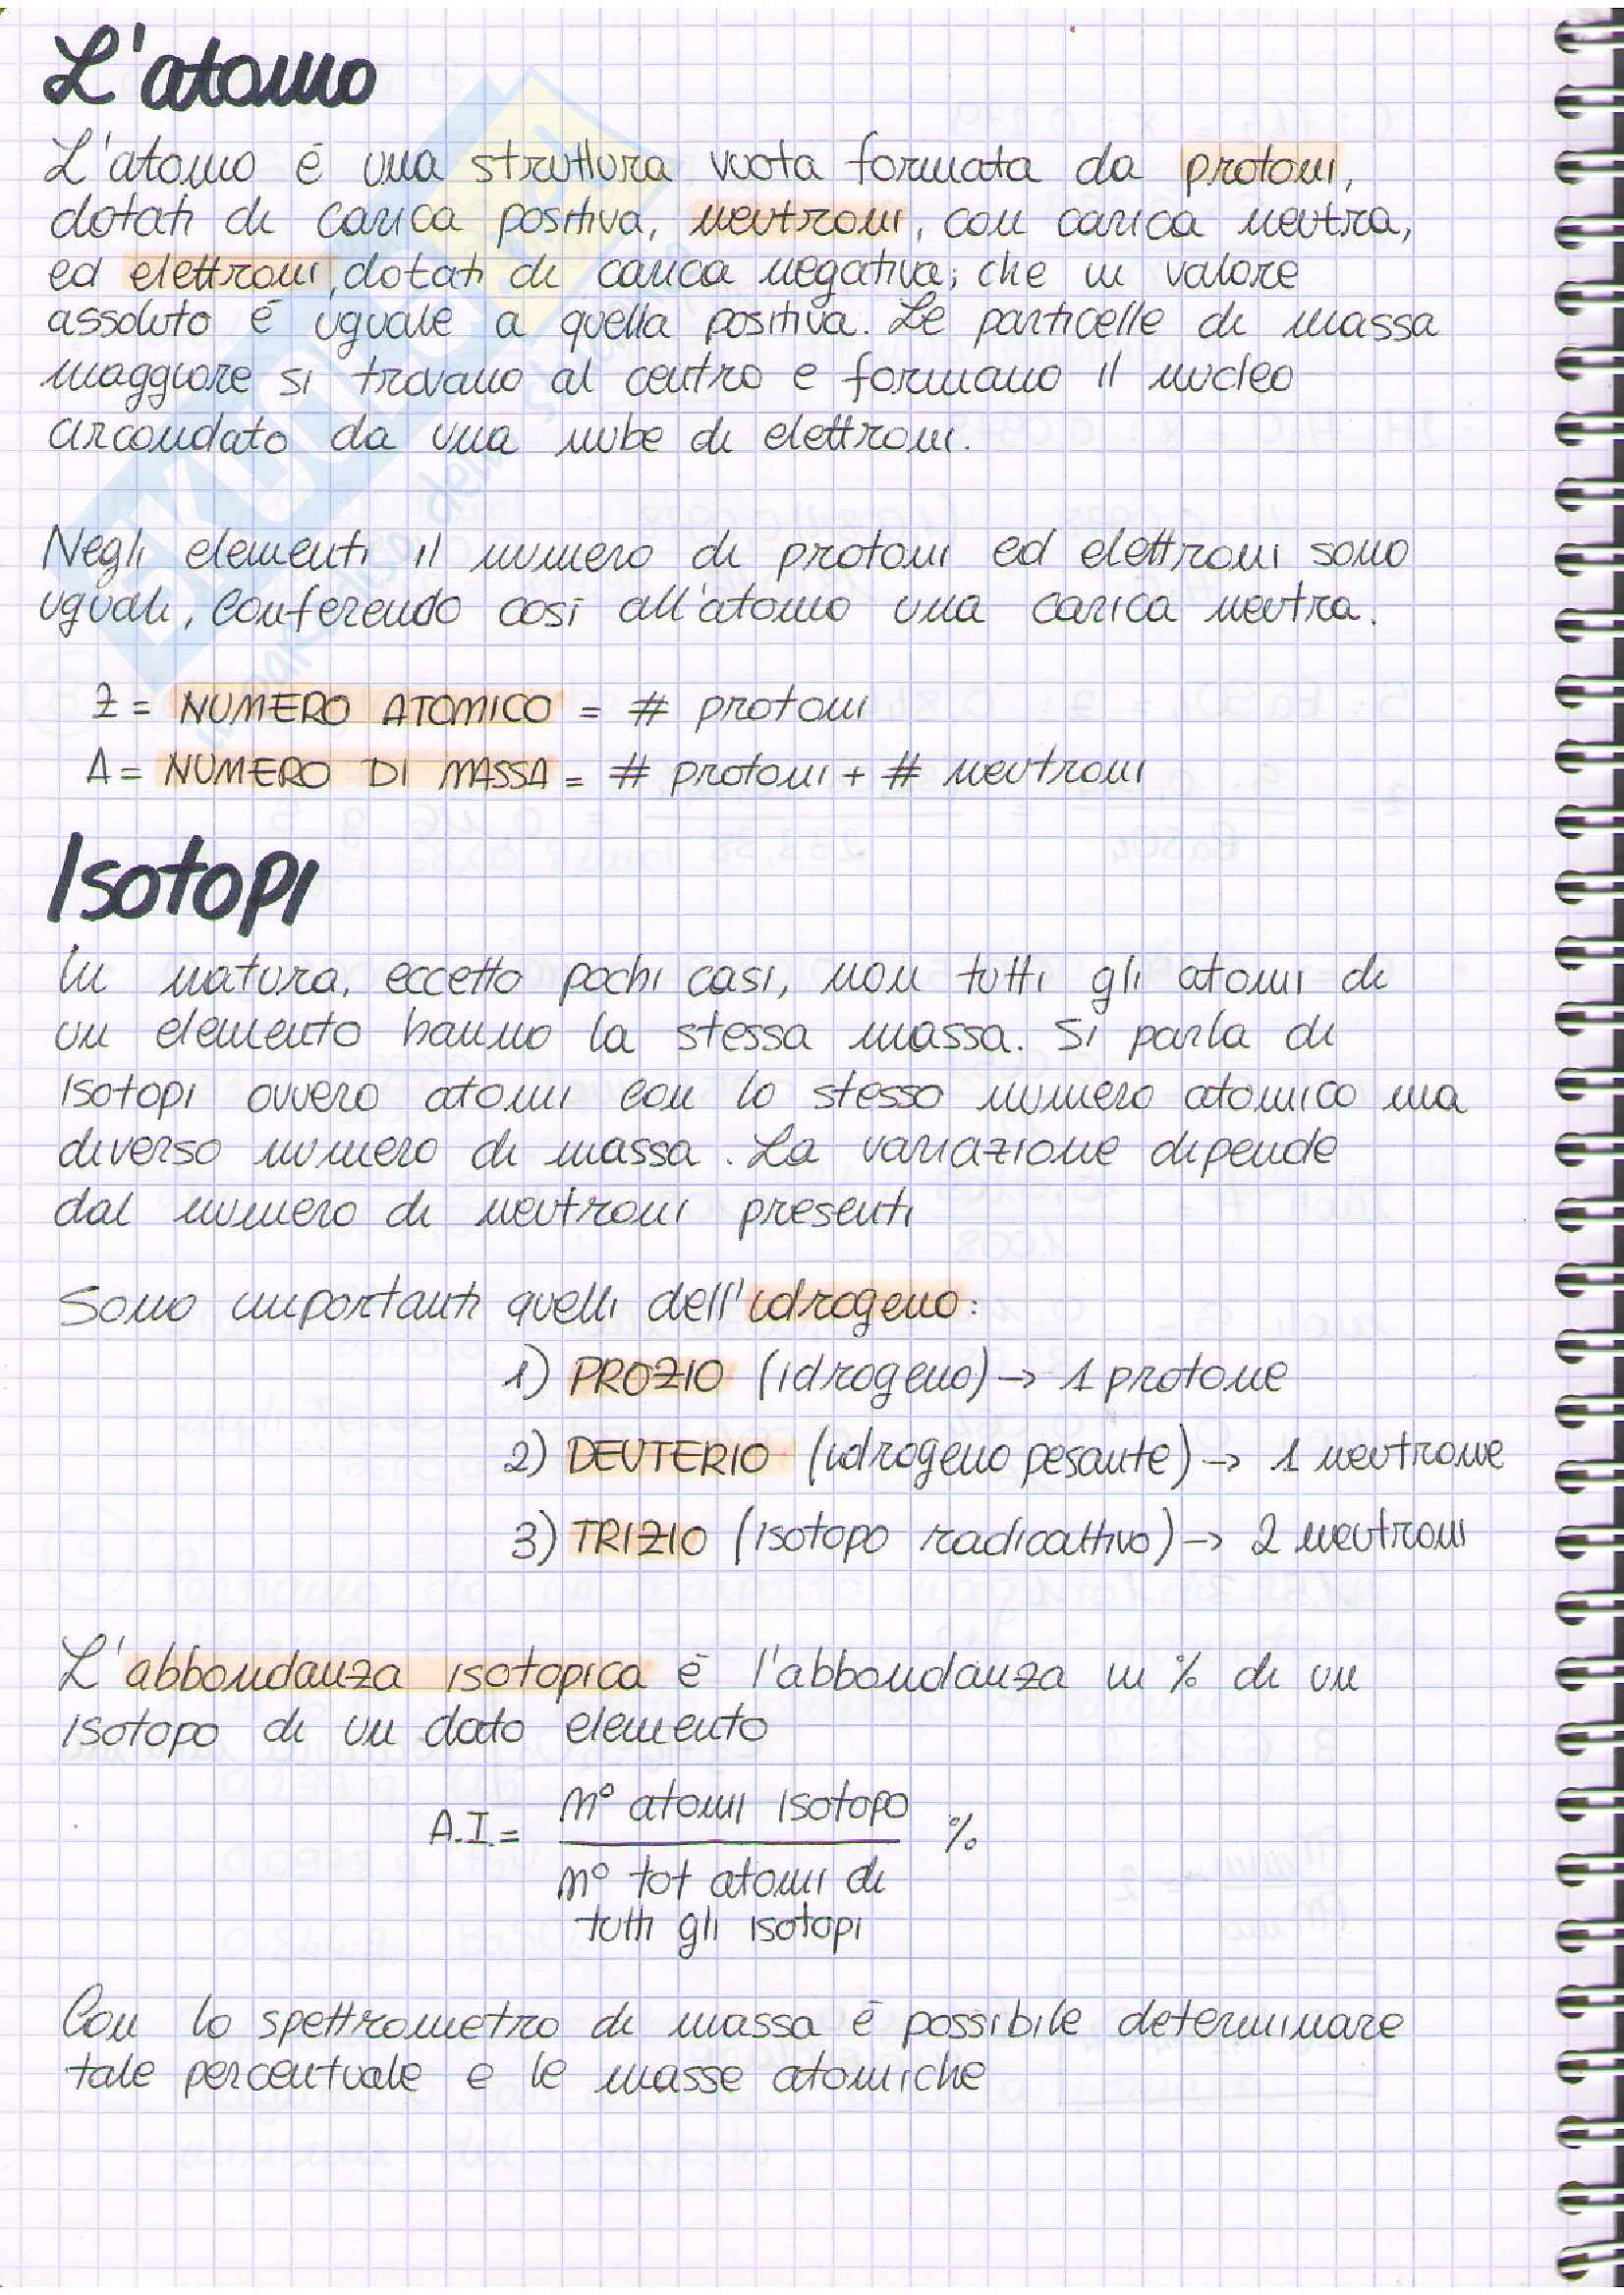 L'atomo
L'atomo è una struttura vuota formata da protoni,
dotati di carica positiva, neutroni, con carica neutra,
ed elettroni, dotati di carica negativa; che in valore
assoluto è uguale a quella positiva. Le particelle di massa
maggiore si trovano al centro e formano il nucleo
circondato da una nube di elettroni.
Negli elementi il numero di protoni ed elettroni sono
uguali, conferendo così all'atomo una carica neutra.
Z = NUMERO ATOMICO = # protoni
A = NUMERO DI MASSA = # protoni + # neutroni
Isotopi
In natura, eccetto pochi casi, non tutti gli atomi di
un elemento hanno la stessa massa. Si parla di
isotopi ovvero atomi con lo stesso numero atomico ma
diverso numero di massa. La variazione dipende
dal numero di neutroni presenti
Sono importanti quelli dell'idrogeno:
1) PROZIO (idrogeno) → 1 protone
2) DEUTERIO (idrogeno pesante) → 1 neutrone
3) TRIZIO (isotopo radioattivo) → 2 neutroni
L'abbondanza isotopica è l'abbondanza in % di un
isotopo di un dato elemento
A.I. = n° atomi isotopo %
n° tot atomi di
tutti gli isotopi
Con lo spettrometro di massa è possibile determinare
tale percentuale e le masse atomiche